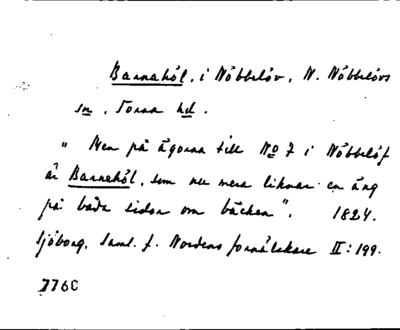 Barnahål, i Nöbbelöv, N. Nöbbelövs
sn, Torna hd.
"Men på ägorna till No 7 i Nöbbelöf
är Barnehål, som nu mera liknar en äng
på båda sidor om bäcken". 1824.
Sjöborg, Saml. f. Nordens fornälskare II: 199.
776C